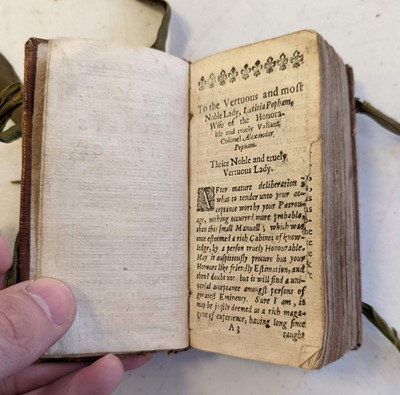 To the Vertuous and moſt
Noble Lady, Letitia Popham,
Wife of the Honora-
ble and truely Valiant
Colonel Alexander
Popham.
Thrice Noble and truely
Vertuous Lady.
AFter mature deliberation
what to tender unto your ac-
ceptance worthy your Patron-
age, nothing occurred more probable
than this ſmall Manuell; which was
once eſteemed a rich Cabinet of know-
ledge, by a perſon truely Honourable.
May it auſpitiouſly procure but your
Honours like friendly Eſtimation, and
then I doubt not but it will find a uni-
verſal acceptance amongſt perſons of
greateſt Eminency. Sure I am, it
may be juſtly deemed as a rich maga-
zine of experience, having long ſince
A3
taught